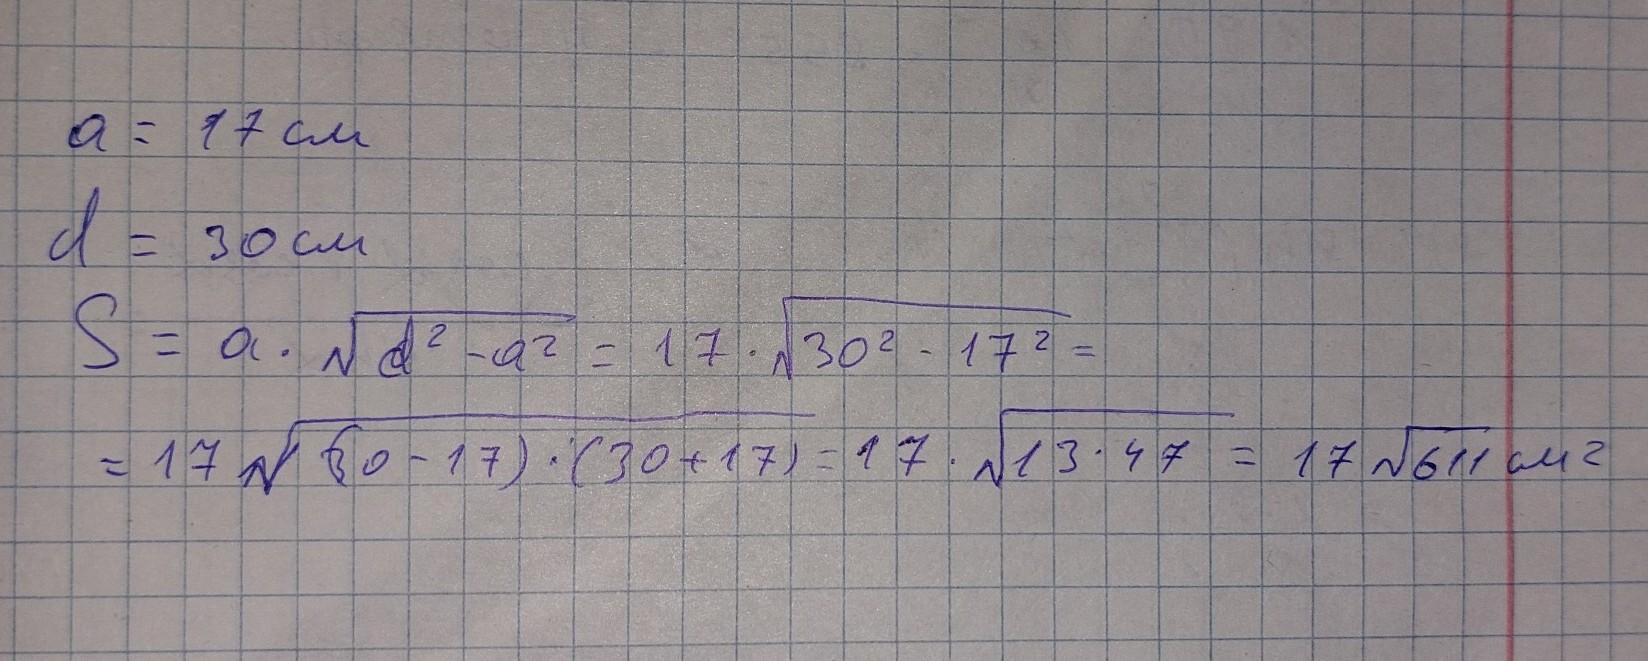 a = 17 см
d = 30 см
S = a · √d² - a² = 17 · √30² - 17² =
= 17 √(30 - 17) · (30 + 17) = 17 · √13 · 47 = 17 √611 см²